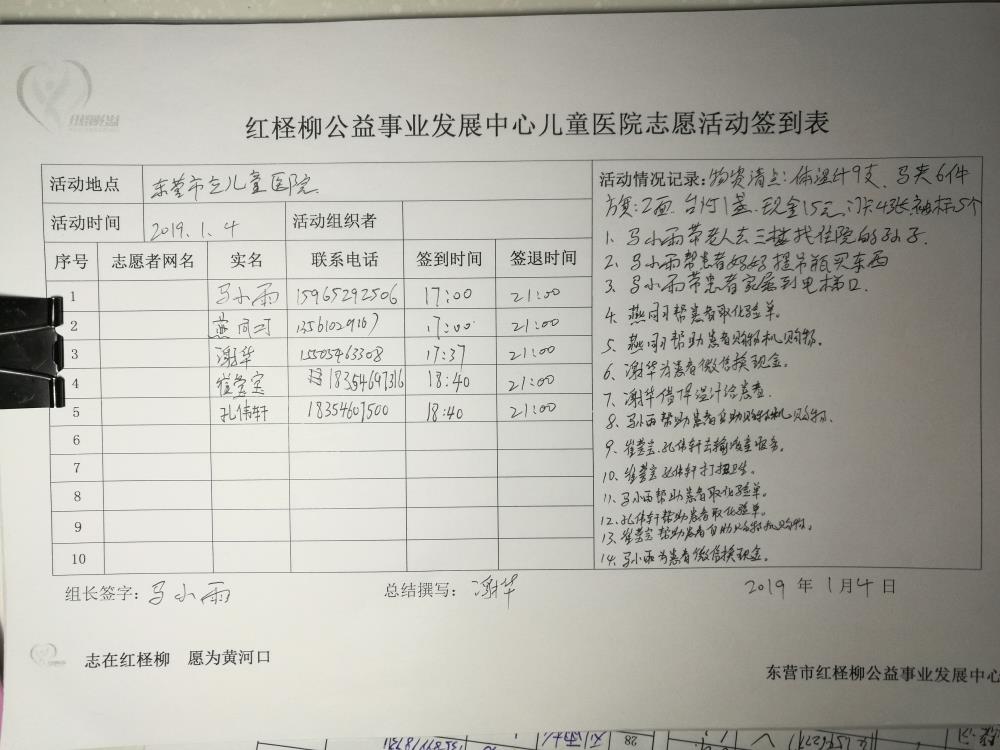 红柽柳公益事业发展中心儿童医院志愿活动签到表
活动地点 东营市立儿童医院
活动时间 2019.1.4 活动组织者
序号 志愿者网名 实名 联系电话 签到时间 签退时间
1 马小雨 15965292506 17:00 21:00
2 燕 13561029167 17:00 21:00
3 谢华 15505463308 17:37 21:00
4 崔莹宝 18354697316 18:40 21:00
5 孔伟轩 18354607500 18:40 21:00
6
7
8
9
10
活动情况记录:物资清点:体温计9支、马夹6件
旗:2面、台灯1盏、现金15元、43张、袖标5个
1、马小雨带老人去三楼找住院的孙子.
2、马小雨帮患者妈妈提吊瓶买东西
3、马小雨带患者家属到电梯口.
4、燕帮患者取化验单。
5、燕帮助患者购物机购物.
6、谢华为患者微信换现金。
7、谢华借体温计给患者.
8、马小雨帮助患者自助购物机购物.
9、崔莹宝、孔伟轩去输液室服务.
10、崔莹宝孔伟轩打扫卫生。
11、马小雨帮助患者取化验单。
12、孔伟轩帮助患者取化验单。
13、崔莹宝帮助患者自助购物机购物。
14、马小雨为患者微信换现金。
组长签字:马小雨 总结撰写:谢华 2019 年 1月4 日
志在红柽柳 愿为黄河口
东营市红柽柳公益事业发展中心
28